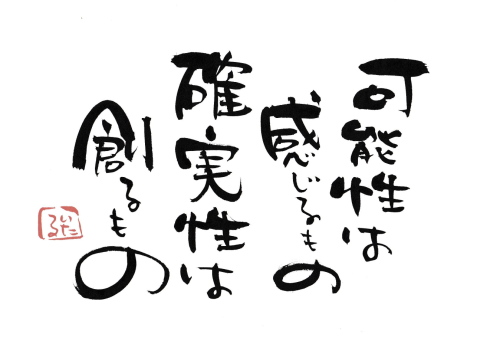 可能性は
感じるもの
確実性は
創るもの